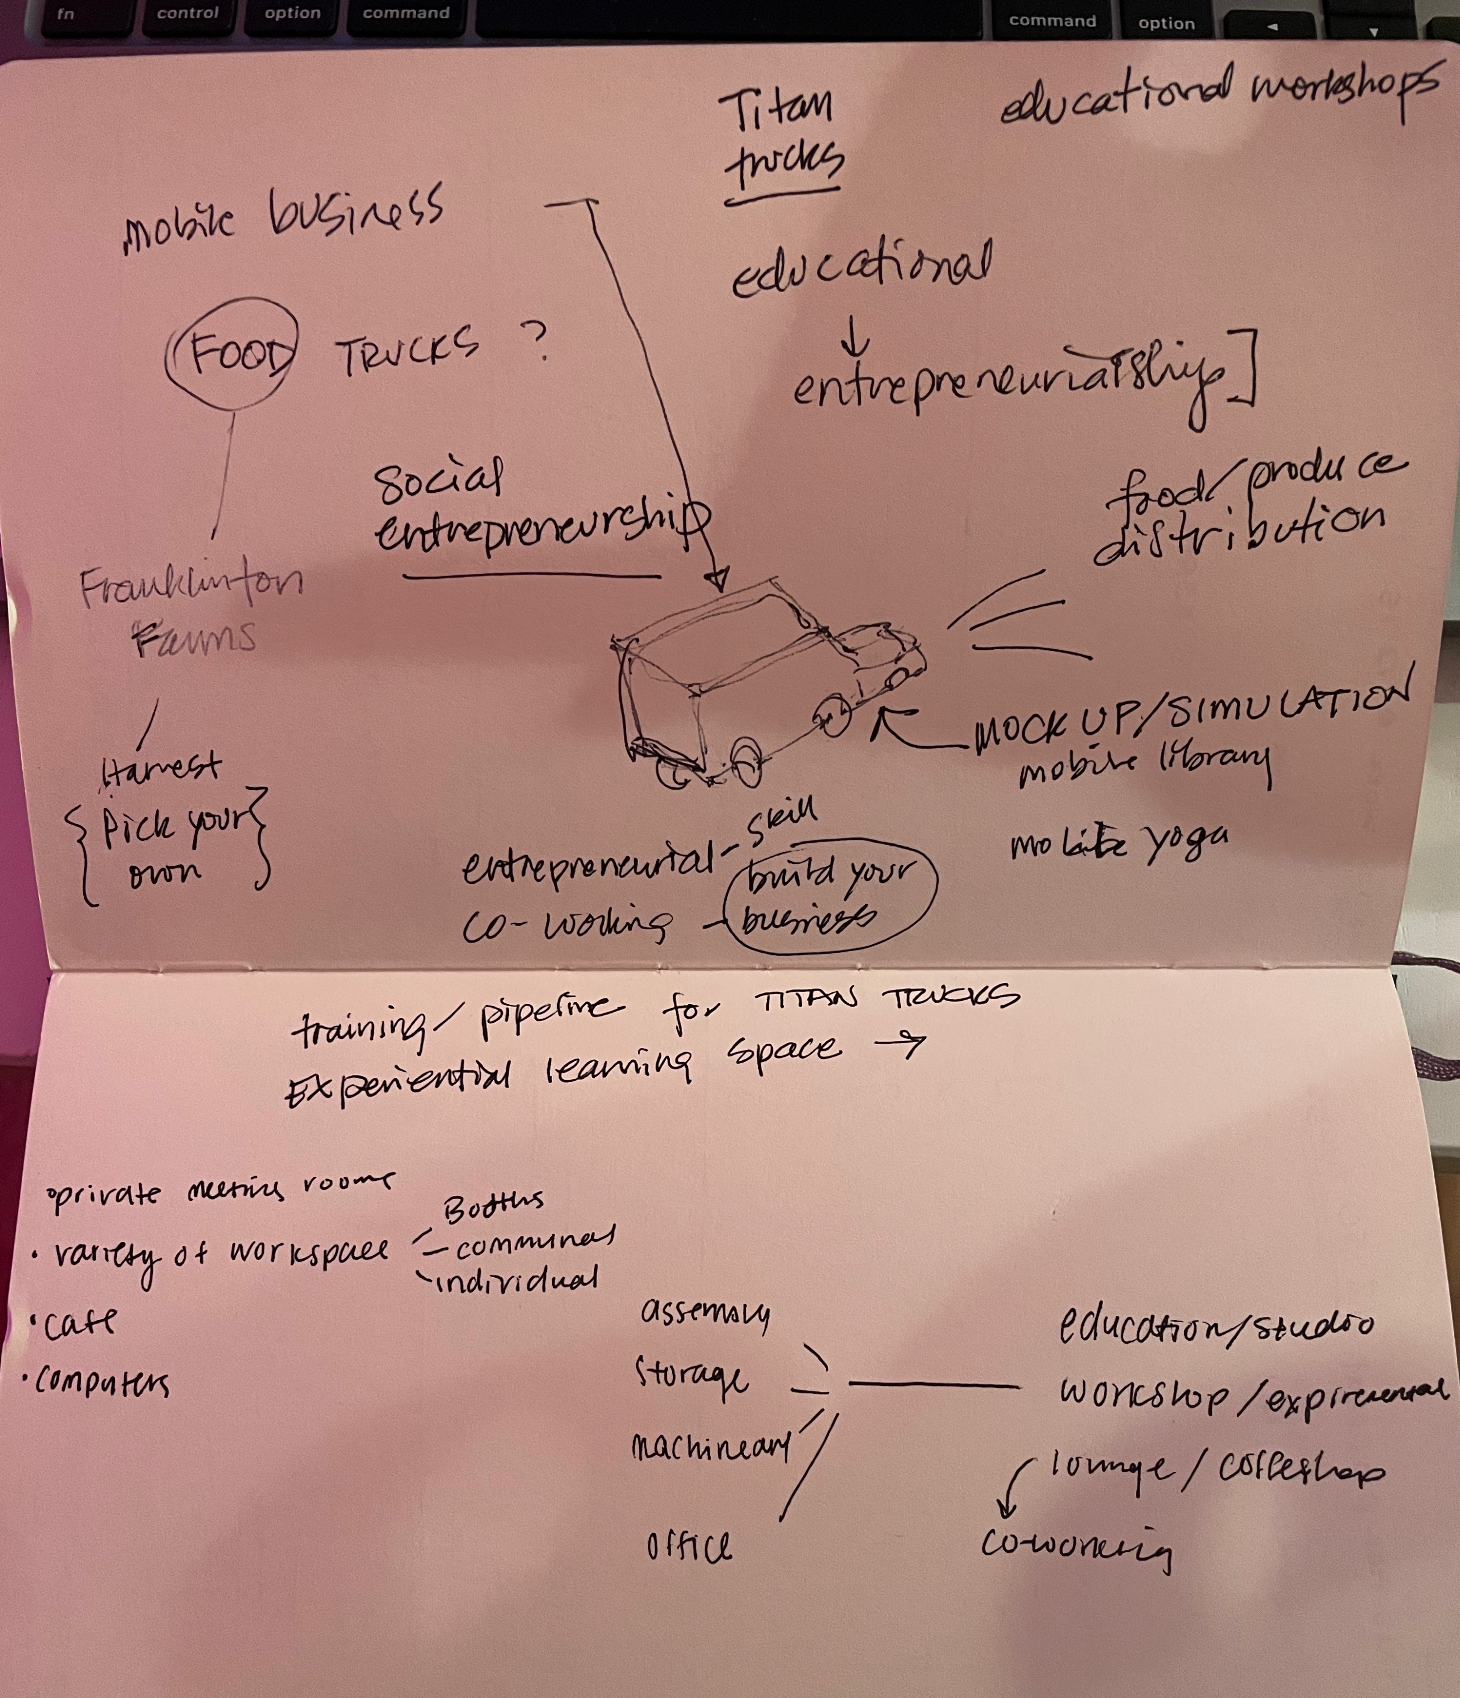 fn control option command command option
Titan
trucks
educational workshops
mobile business
educational
FOOD TRUCKS ?
entrepreneuriatship]
Social
entrepreneurship
food/produce
distribution
Franklinton
Farms
MOCK UP/SIMULATION
mobile library
Harvest
{ Pick your }
own
entrepreneurial - skill
build your
business
co-working -
mobile yoga
training/pipeline for TITAN TRUCKS
Experiential learning space →
• private meeting rooms
• variety of workspace
Booths
- communal
- individual
• cafe
• computers
assembly
storage
machineary
office
education/studio
workshop/expiremental
lounge / coffeshop
co-working